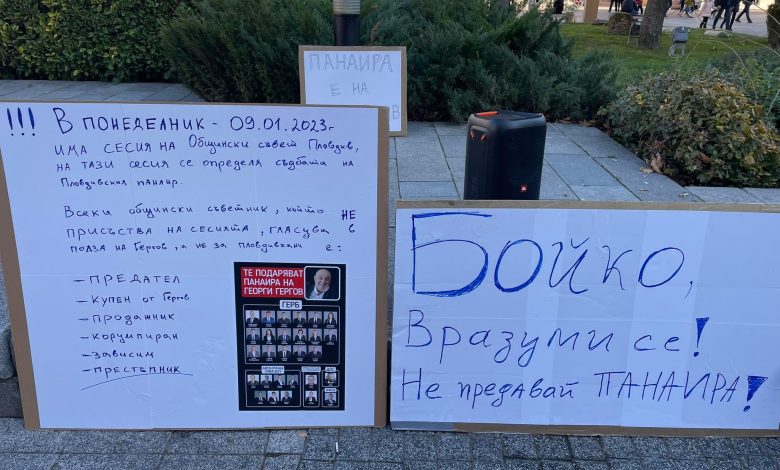 ПАНАИРА
Е НА
В
!!! В ПОНЕДЕЛНИК - 09.01.2023г.
ИМА СЕСИЯ НА Общински съвет Пловдив,
НА ТАЗИ СЕСИЯ СЕ ОПРЕДЕЛЯ СЪДБАТА НА
Пловдивския ПАНАИР.
Всеки общински съветник, който НЕ
ПРИСЪСТВА НА СЕСИЯТА, ГЛАСУВА В
ПОЛЗА НА Гергов, А НЕ ЗА ПЛОВДИВЧАНИ Е:
- ПРЕДАТЕЛ
- КУПЕН ОТ Гергов
- ПРОДАЖНИК
- КОРУМПИРАН
- ЗАВИСИМ
- ПРЕСТЪПНИК
ТЕ ПОДАРЯВАТ
ПАНАИРА НА
ГЕОРГИ ГЕРГОВ
ГЕРБ
JBL
БОЙКО,
Вразуми се!
Не предавай ПАНАИРА!